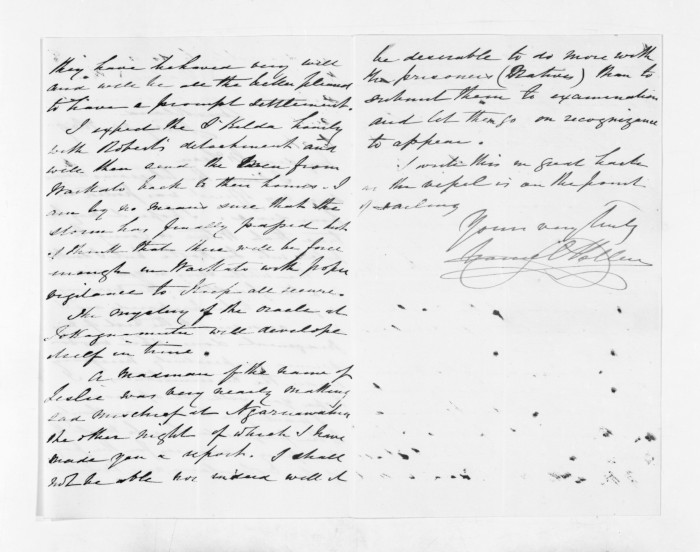 they have behaved very well
and will be all the better pleased
to have a prompt settlement.
I expect the St Kilda hourly
with Roberts detachment and
will then send the men from
Waikato back to their homes. I
am by no means sure that the
storm has finally passed but
I think that there will be force
enough in Waikato with proper
vigilance to keep all secure.
The mystery of the oracle at
will develope
itself in time.
A madman of the name of
Leslie was very nearly making
sad mischief at Ngaruawahia
the other night of which I have
made you a report. I shall
not be able nor indeed will it
be desirable to do more with
the prisoners (Natives) than to
submit them to examination
and let them go on recognizance
to appear.
I write this in great haste
as the vessel is on the point
of sailing
Yours very truly
Daniel Pollen